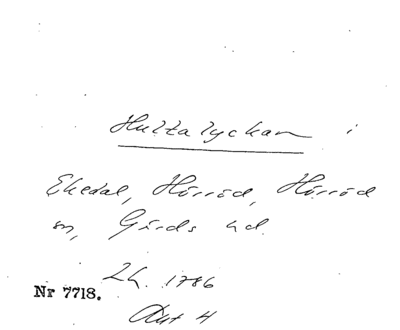 Hultalyckan i
Ekedal, Hörröd, Hörröd
sn, Gärds hd
Lh. 1786
Nr 7718.
Akt 4